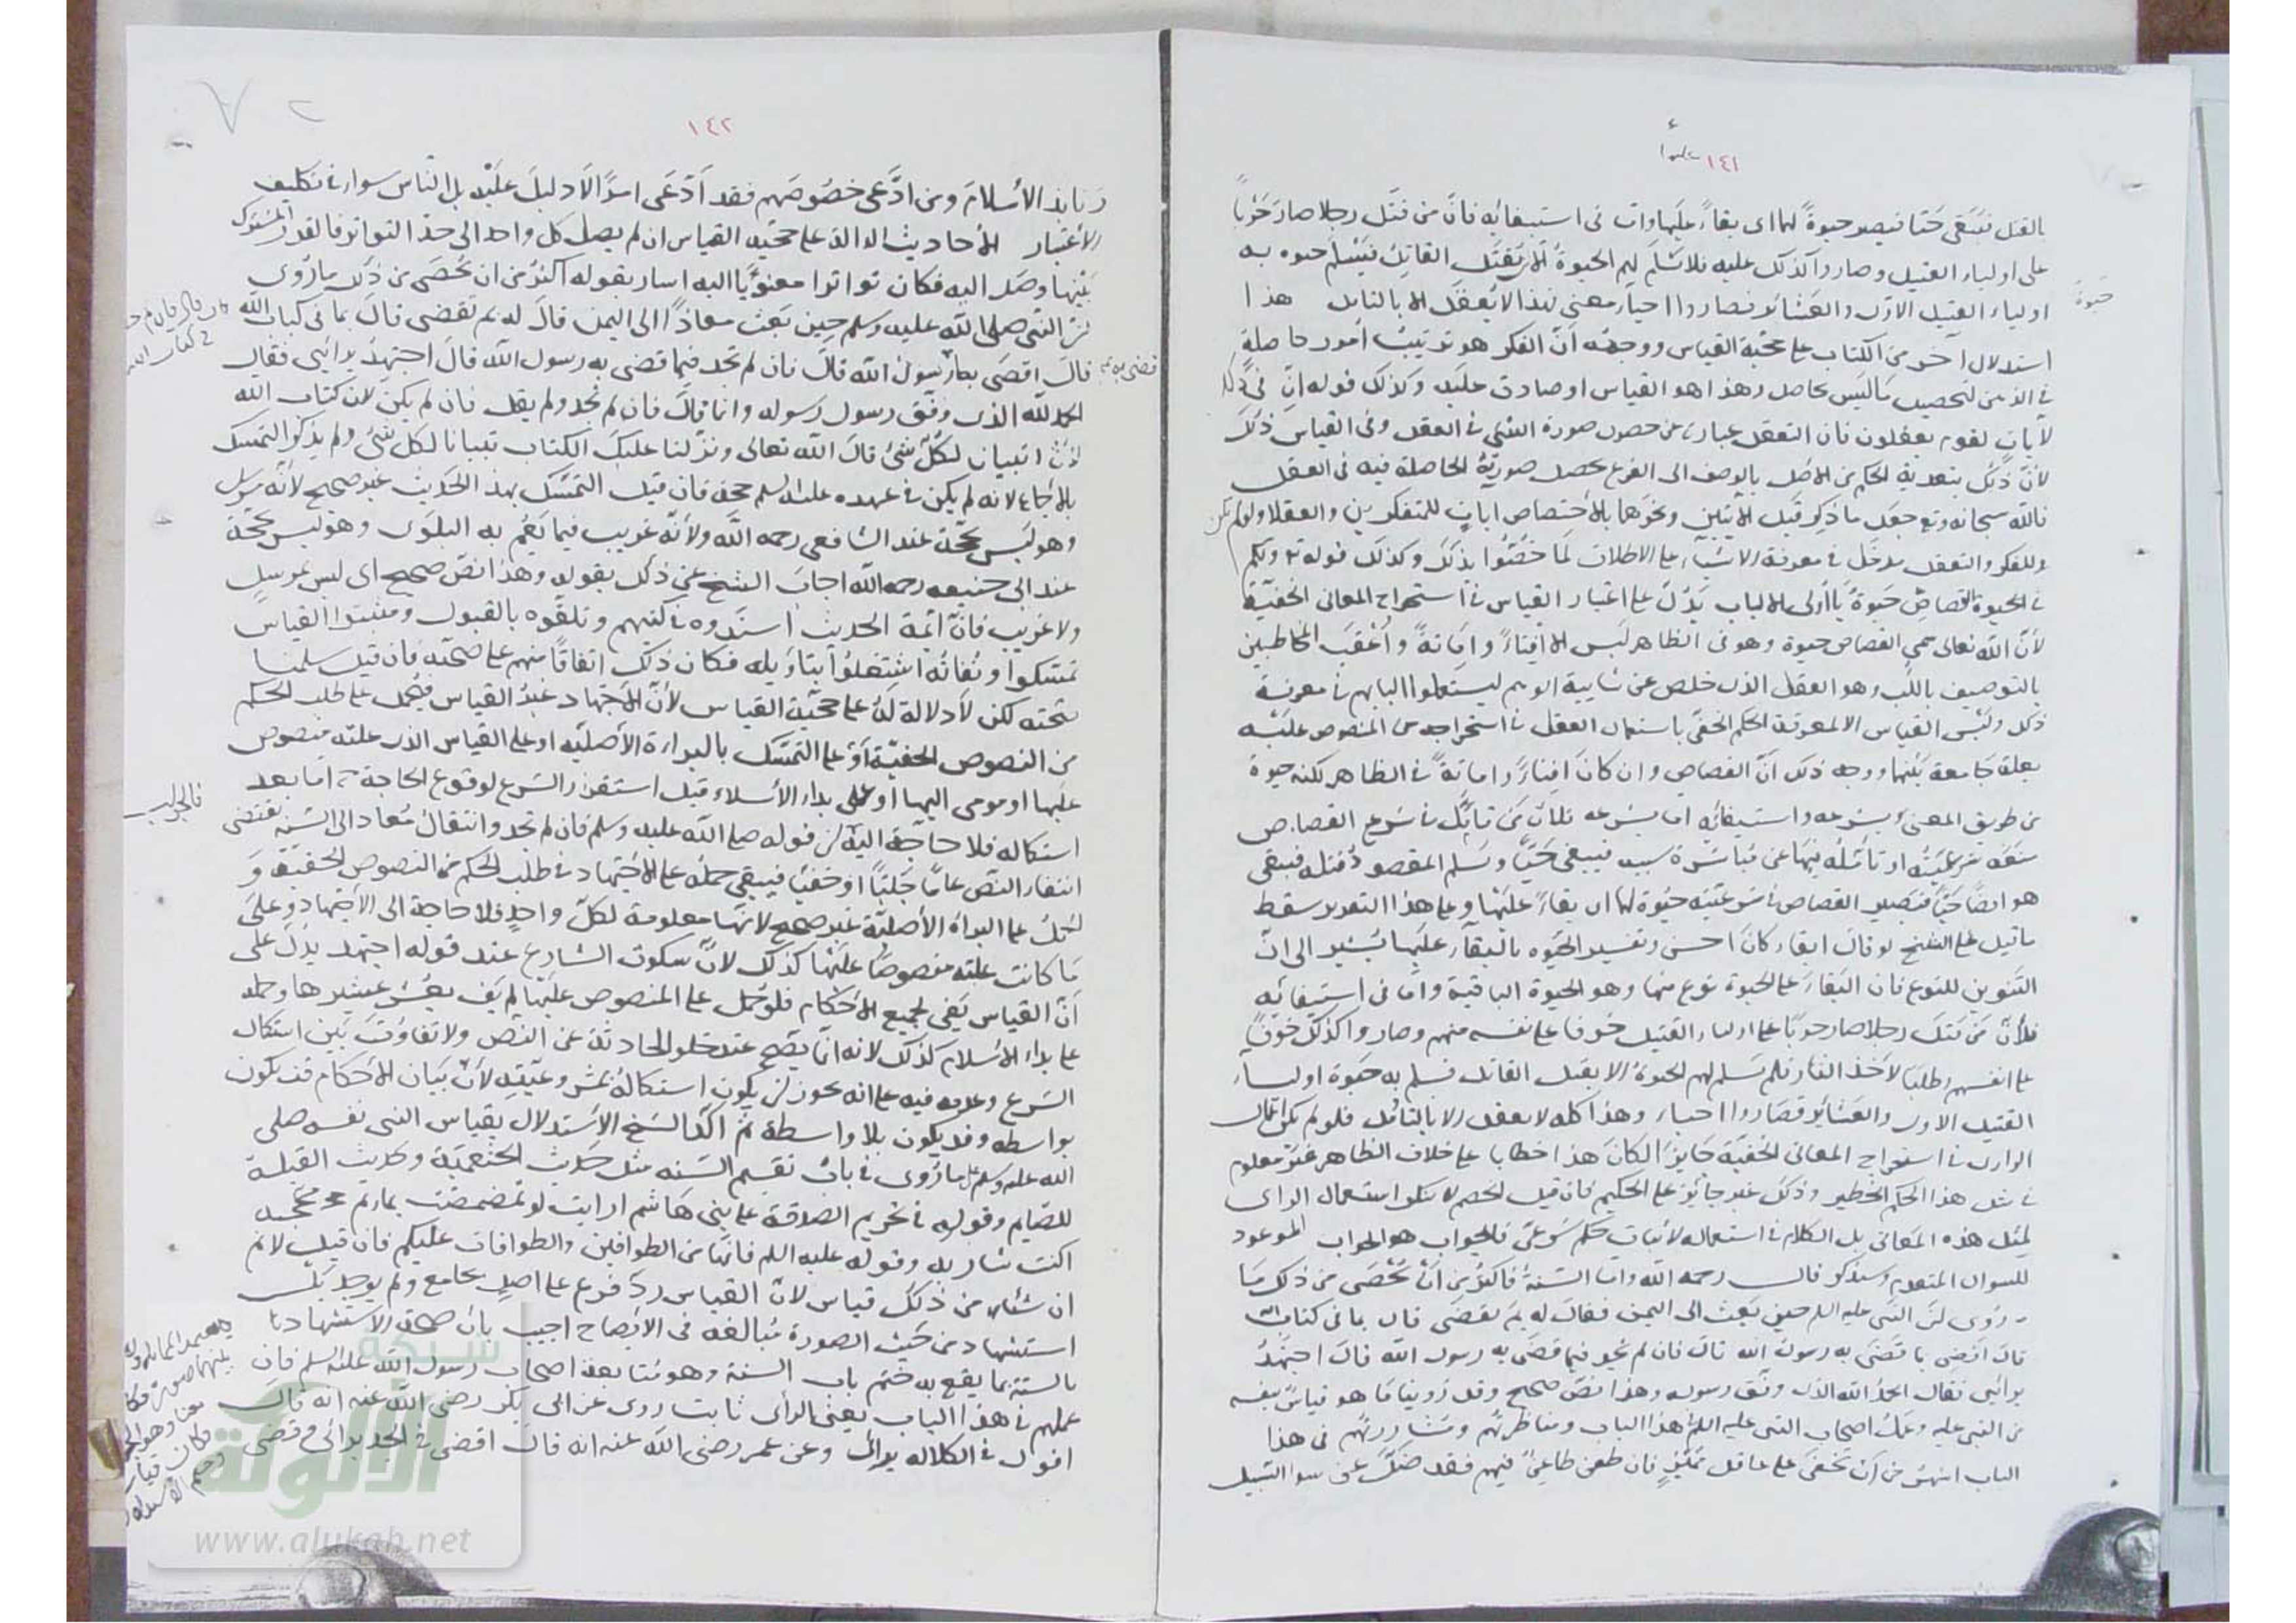 ١٤١
بالقتل فتبقى حتا فيصير حيوةً لهما اى بقاءً عليهما وان فى استيفائه فانّ من قتل رجلا صار حَرْبًا
على اولياء القتيل وصاروا كذلك عليه فلا تسلم لهم الحيوة الا ان يقتل القاتل فيسلم حيوه به
حيوة
اولياء القتيل الاول والعشائر فصاروا احياء معنى لهذا لا يعقل الا بالتامل هذا
استدلال اخر من الكتاب على حجية القياس ووجهه أنّ الفكر هو ترتيب أمور حاصلةٍ
فى الذهن لتحصيل ما ليس بحاصل وهذا هو القياس او صادق عليه وكذلك قوله ان فى ذلك
لآياتٍ لقوم يعقلون فان التعقل عبارة عن حصول صورة الشئ فى العقل وفى القياس ذلك
لأنّ ذلك بتعدية الحكم من الاصل بالوصف الى الفرع يحصل صورته الحاصلة فيه فى العقل
فالله سبحانه وتع جعل ما ذكر قبل الايتين ونحوهما بالاختصاص ايات للمتفكرين والعقلا ولو لم يكن
للفكر والتعقل مدخل فى معرفة الاشياء على الاطلاق لما خُصّوا بذلك وكذلك قوله تع ولكم
فى القصاص حيوةٌ يا أولى الالباب يدُلّ على اعتبار القياس فى استخراج المعانى الخفيّة
لأنّ الله تعالى سمى القصاص حيوة وهو فى الظاهر ليس الا افناءً واماتةً وأعقب المخاطبين
بالتوصيف باللّب وهو العقل الذى خلص عن شايبة الوهم ليستعملوا البابهم فى معرفة
ذلك وليس القياس الا لمعرفة الحكم الخفىّ باستعمال العقل فى استخراجه من المنصوص عليه
بعلة جامعة بينهما ووجه ذلك أنّ القصاص وان كان افناءً واماتةً فى الظاهر لكنه حيوة
من طريق المعنى بشرعه واستيفائه اما بشرعه فلأن من تأمّل فى شرع القصاص
هو ايضًا حيًّا فتصير القصاص فى شرعيّته حيوة لهما اى بقاءً عليهما وعلى هذا التقدير سقط
ما قيل على الشيخ لو قال ابقاء كان احسن وتفسير الحيوه بالبقاء عليهما يُشير الى انّ
التنوين للنوع فان البقاء على الحيوة نوع منها وهو الحيوة الباقية وامّا فى استيفائه
فلأن من قتل رجلا صار حربًا على اولياء القتيل خوفا على نفسه منهم وصاروا كذلك خوفًا
على انفسهم وطلبًا لاخذ الثار فلم تسلم لهم الحيوة الا بقتل القاتل فسلم به حيوة اولياء
القتيل الاول والعشائر فصاروا احياء وهذا كله لا يعقل الا بالتأمّل فلو لم يكن اعمال
الراى فى استخراج المعانى الخفيّة جايزًا لكان هذا خطابا على خلاف الظاهر غير معلوم
فى مثل هذا الحكم الخطير وذلك غير جايز على الحكيم فان قيل الخصم لا ينكر استعمال الراى
لمثل هذه المعانى بل الكلام فى استعماله لاثبات حكم شرعىّ فالجواب هو الجواب الموعود
للسوال المتقدم وسيذكر قال رحمه الله وامّا السّنةُ فاكثر من أن تُحصى من ذلك ما
روى انّ النبى عليه السلم حين بعث الى اليمن فقال له بم تقضى قال بما فى كتاب الله
قال اقضى بما قضى به رسول الله قال فان لم تجد فيما قضى به رسول الله قال اجتهدُ
برأيى فقال الحمد الله الذى وفّق رسوله وهذا نصّ صحيح وقد روينا ما هو قياس بنفسه
من النبى عليه وعمل اصحاب النبى عليه السلم هذا الباب ومناظرتهم ومشاورتهم فى هذا
الباب اشهر من أن تخفى على عاقل مميّزٍ فان طعن طاعنٌ فيهم فقد ضلّ عن سواء السّبيل
١٤٢
ونابذ الأسلام ومن ادّعى خصوصهم فقد ادّعى امرًا لا دليل عليه بل الناس سواء فى تكليف
الاعتبار الأحاديث الدالة على حجّية القياس ان لم يصل كل واحد الى حدّ التواتر فالقدر المشترك
بينها وصل اليه فكان تواترا معنويًا اليه اشار بقوله اكثر من ان تحصى من ذلك ما روى
انّ النبى صلى الله عليه وسلم حين بعث معاذًا الى اليمن قال له بم تقضى قال بما فى كتاب الله
قال اقضى بما رسول الله قال فان لم تجد فيما قضى به رسول الله قال اجتهدُ برأيى فقال
قضى به
الحمد لله الذى وفّق رسول رسوله وانما قال فان لم تجد ولم يقل فان لم يكن لان كتاب الله
تبيان لكلّ شئ قال الله تعالى ونزّلنا عليك الكتاب تبيانا لكل شئ ولم يذكر التمسك
بالاجماع لانه لم يكن فى عهده عليه السلم حجة فان قيل التمسّك بهذا الحديث غير صحيح لأنّه مرسل
وهو ليس بحجّة عند الشافعى رحمه الله ولأنّه غريب فيما تعُم به البلوى وهو ليس بحجة
عند ابى حنيفه رحمه الله اجاب الشيخ عن ذلك بقوله وهذا نصّ صحيح اى ليس بمرسلٍ
ولا غريب فانّ أئمة الحديث أسندوه فى كتبهم وتلقّوه بالقبول ومثبتوا القياس
تمسّكوا ونُفاته اشتغلوا بتأويله فكان ذلك اتفاقًا منهم على صحّته فان قيل سلمنا
صحته لكن لا دلالة له على حجّية القياس لأنّ الاجتهاد غيرُ القياس فيُحمل على طلب الحكم
من النصوص الخفيّة أو على التمسّك بالبراءة الأصليّه او على القياس الذى علته منصوص
عليها او مومى اليها او على بداء الأسلام قبل استقرار الشرع لوقوع الحاجة اما بعد
استكماله فلا حاجة اليه
فالجواب
ان قوله صلى الله عليه وسلم فان لم تجد وانتقال مُعاد الى السّنة يقتضى
انتفاء النصّ عامًا جليًّا او خفيًا فيبقى حمله على الاجتهاد فى طلب الحكم من النصوص الخفيّة و
الحمل على البراة الأصليّة غير صحيح لانها معلومة لكلّ واحد فلا حاجة الى الأجتهاد وعلى
ما كانت علته منصوصًا عليها كذلك لأنّ سكوت الشارع عند قوله اجتهد يدل على
أنّ القياس يفى بجميع الأحكام فلو حُمل على المنصوص عليها لم يف بعُشر عشيرها وحمله
على بداء الاسلام كذلك لانه انّما يصّح عند خلو الحادثة عن النصّ ولا تفاوُت بين استكمال
الشرع وعدمه فيه على انه يجوز ان يكون استكماله بمشروعيّته لأنّ بيان الأحكام قد يكون
بواسطه وقد يكون بلا واسطة ثم اكّد الشيخ الاستدلال بقياس النبى نفسه صلى
الله عليه وسلم على ما رُوى فى باب تقسيم السّنه مثل حديث الخثعميّة وحديث القبلة
للصّايم وقوله فى تحريم الصدقة على بنى هاشم ارايت لو تمضمضت بماء ثم مججته
اكنت شاربه وقوله عليه السلم فانها من الطوافين والطوافات عليكم فان قيل لا نم
ان شئا من ذلك قياس لأنّ القياس ردّ فرع على اصلٍ بجامع ولم يوجد بل
استشهاد من حيث الصورة مُبالغة فى الأيضاح اجيب بان
بالسنة بما يقع به ختم باب السنة وهو متابعة اصحاب رسول الله عليه السلم فان
عملهم فى هذا الباب يعنى الراى ثابت روى عن ابى بكر رضى الله عنه انه قال
اقول فى الكلاله برائى وعن عمر رضى الله عنه انه قال اقضى فى الجد برائى وقضى
شبكة
الألوكة
www.alukah.net